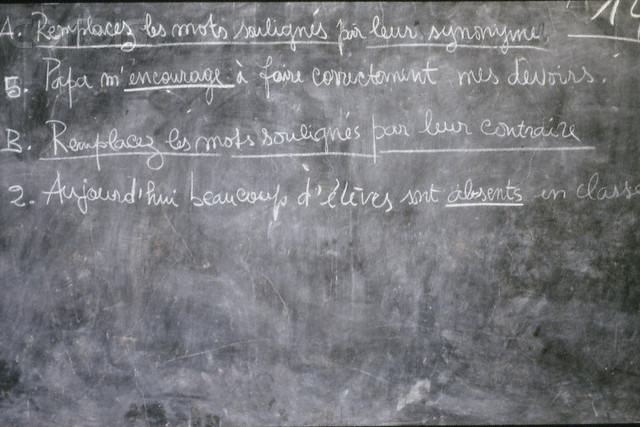 A. Remplacez les mots soulignés par leur synonyme. 14
5. Papa m'encourage à faire correctement mes devoirs.
B. Remplacez les mots soulignés par leur contraire
2. Aujourd'hui beaucoup d'élèves sont absents in class